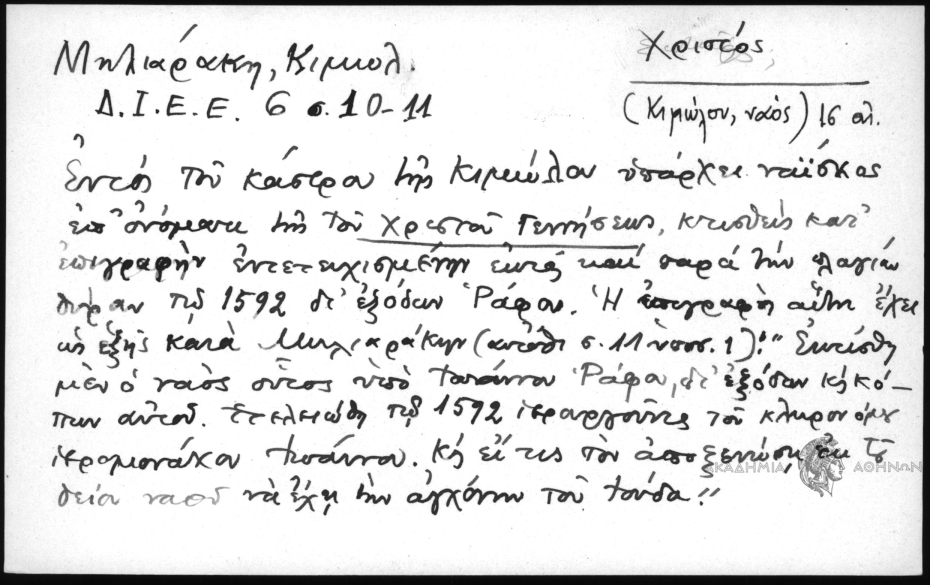 Μηλιαράκη, Κιμωλ.
Χριστός
Δ.Ι.Ε.Ε. 6 σ. 10-11
(Κιμώλου, ναὸς) 16 αἰ.
Ἐντὸς τοῦ κάστρου τῆς Κιμώλου ὑπάρχει ναΐσκος
ἐπ' ὀνόματι τῆς τοῦ Χριστοῦ Γεννήσεως, κτισθεὶς κατ'
ἐπιγραφὴν ἐντετειχισμένην ἐκτὸς καὶ παρὰ τὴν πλαγίαν
θύραν τῷ 1592 δι' ἐξόδων Ῥάφου. Ἡ ἐπιγραφὴ αὕτη ἔχει
ὡς ἑξῆς κατὰ Μηλιαράκην (αὐτόθι σ. 11 ὑποσ. 1): "Ἐκτίσθη
μὲν ὁ ναὸς οὗτος ὑπὸ Ἰωάννου Ῥάφου, δι' ἐξόδων κὴ κό-
πων αὐτοῦ. Ἐτελειώθη τῷ 1592 ἱεραργοῦντος τοῦ κληρονόμου
ἱερομονάχου Ἰωάννου. Κὴ εἴ τις τὸν ἀποξενώσῃ ἐκ τοῦ
θείου ναοῦ νὰ ἔχῃ τὴν ἀγχόνην τοῦ Ἰούδα!"
ΑΚΑΔΗΜΙΑ ΑΘΗΝΩΝ